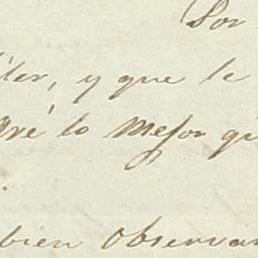 Por
ler, y que le
dré lo mejor qu
bien observan